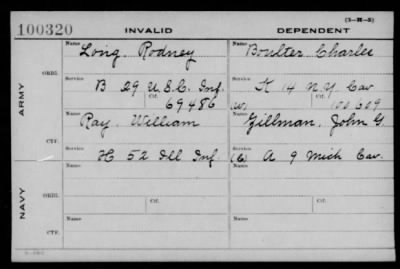 (3-H-5)
100320 INVALID DEPENDENT
ARMY
ORIG.
Name Long, Rodney Name Boulter Charles
Service B 29 U.S.C. Inf. Service K 14 N.Y. Cav
Ctf. 69486 (W) Ctf. 100609
CTF.
Name Ray. William Name Gillman, John G.
Service H 52 Ill Inf. Service (C) A 9 Mich Cav.
NAVY
ORIG.
Name Name
Service Service
Ctf. Ctf.
CTF.
Name Name